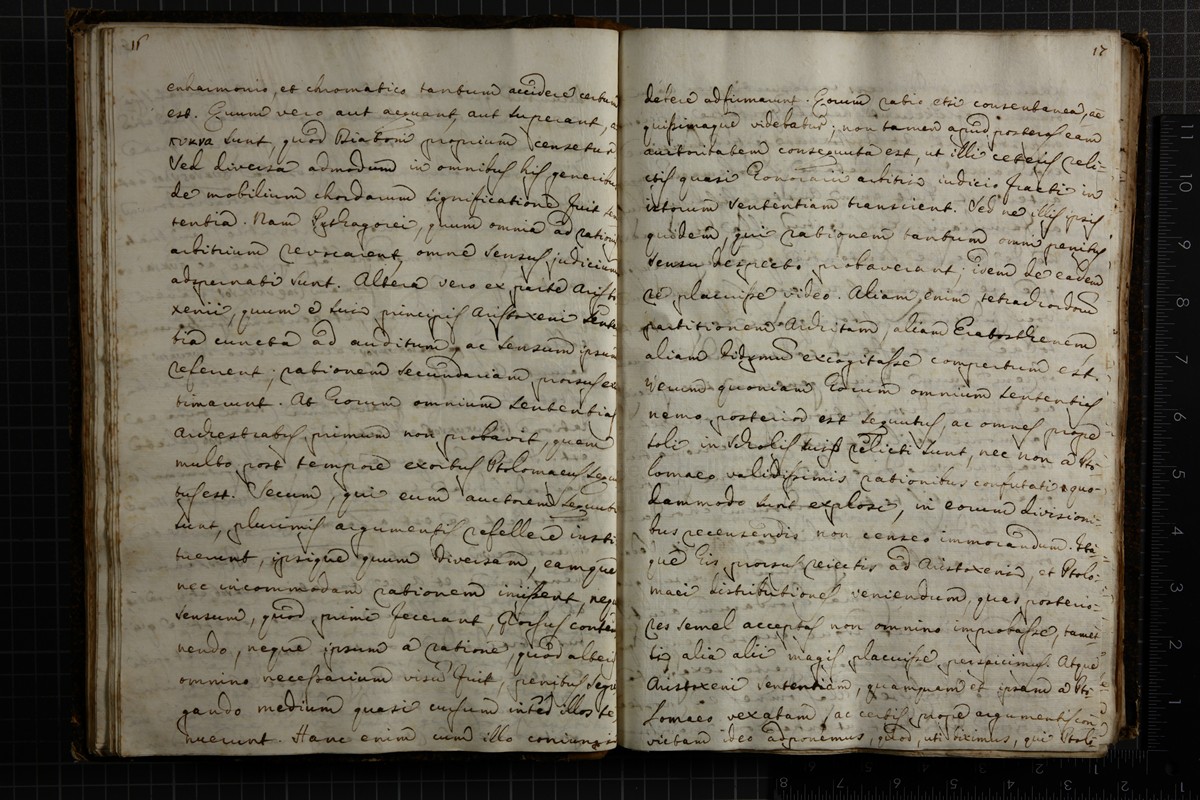 16
enharmonio, et chromatico tantum accidere certum
est. Quum vero aut aequant, aut superant,
πυκνα sunt, quod Diatoni proprium censetur
Sed diversa admodum in omnibus his generibus
de mobilium chordarum significatione fuit
tentia. Nam Pythagorei, quum omnia ad rationis
arbitrium revocarent, omne sensus judicium
adspernati sunt. Altera vero ex parte Aristo
xenii, quum e sui principis Aristoxeni sente
tia cuncta ad auditum, ac sensum ipsum
referent; rationem secundariam prorsus ex
timarunt. At eorum omnium sententias
Archestratus primum non probavit, quem
multo post tempore exortus Ptolomaeus sequu
tus est. Secum, qui eum auctorem sequuti
sunt, plurimis argumentis refellere insti
tuerunt, ipsique quum diversam, eamque
nec incommodam rationem inissent, neque
sensum, quod primi fecerant, prorsus contem
nendo, neque ipsum a ratione, quod alteris
omnino necessarium visu fuit, penitus segre
gando medium quasi cursum inter illos te
nuerunt. Hanc enim cum illo coniungi
17
debere adfirmarunt. Quorum ratio etsi consentanea, ae
quissimaque videbatur; non tamen apud posteros eam
auctoritatem consequuta est, ut illi ceteris reli-
ctis quasi honorarii arbitrii iudicio fracti in
istorum sententiam transirent. Sed ne illis ipsis
quidem, qui rationem tantum omni penitus
sensu despecto probaverant; idem de eadem
re placuisse video. Aliam enim tetrachordorum
partitionem Architam, aliam Eratosthenem
aliam Didymum excogitasse compertum est.
Verum quoniam Eorum omnium sententias
nemo posterior est sequutus, ac omnes prope
soli in scholis suis relicti sunt, nec non a Pto
lomaeo validissimis rationibus confutati quo-
dammodo sunt explosi, in eorum divisioni-
bus recensendis non censeo immorandum. Ita
que his prorsus reiectis ad Aristoxeni, et Ptolo-
maei distributiones veniendum, ques posterio-
res semel acceptas non omnino improbasse, tamet
si alia alii magis placuisse perspicimus. Atque
Aristoxeni sententiam, quamquam et ipsam a Pto
lomaeo vexatam, ac certis prope argumentis con
victam ideo adponemus, quod, uti diximus, qui Ptole